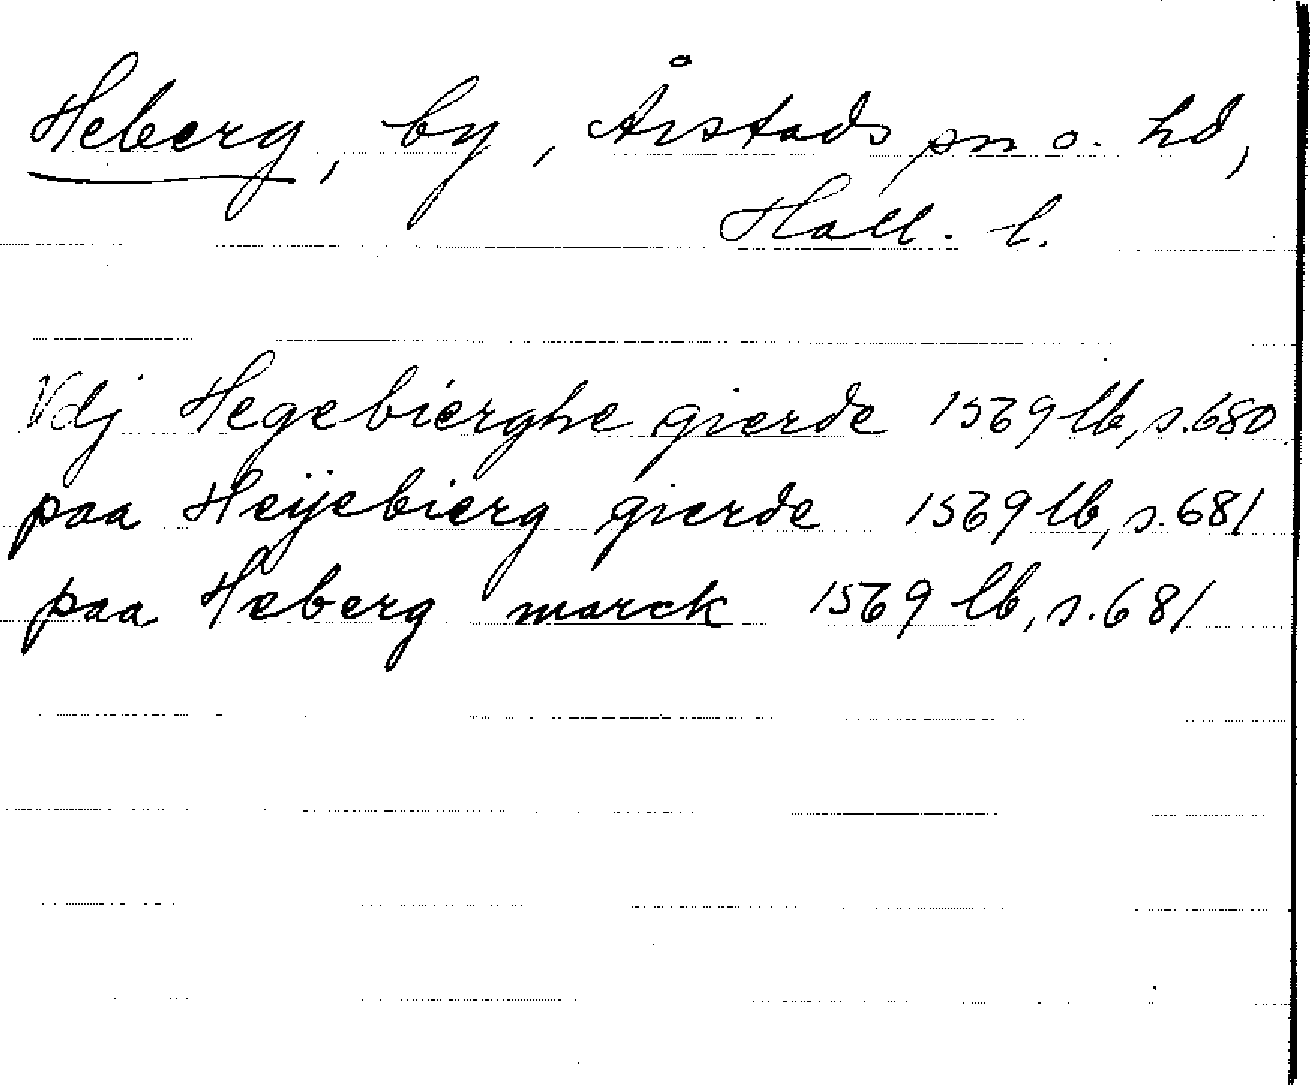 Heberg, by, Årstads sn o. hd,
Hall. l.
Vdj Hegebierghe gierde 1569 lb, s. 680
paa Heijebierg gierde 1569 lb, s. 681
paa Heberg marck 1569 lb, s. 681